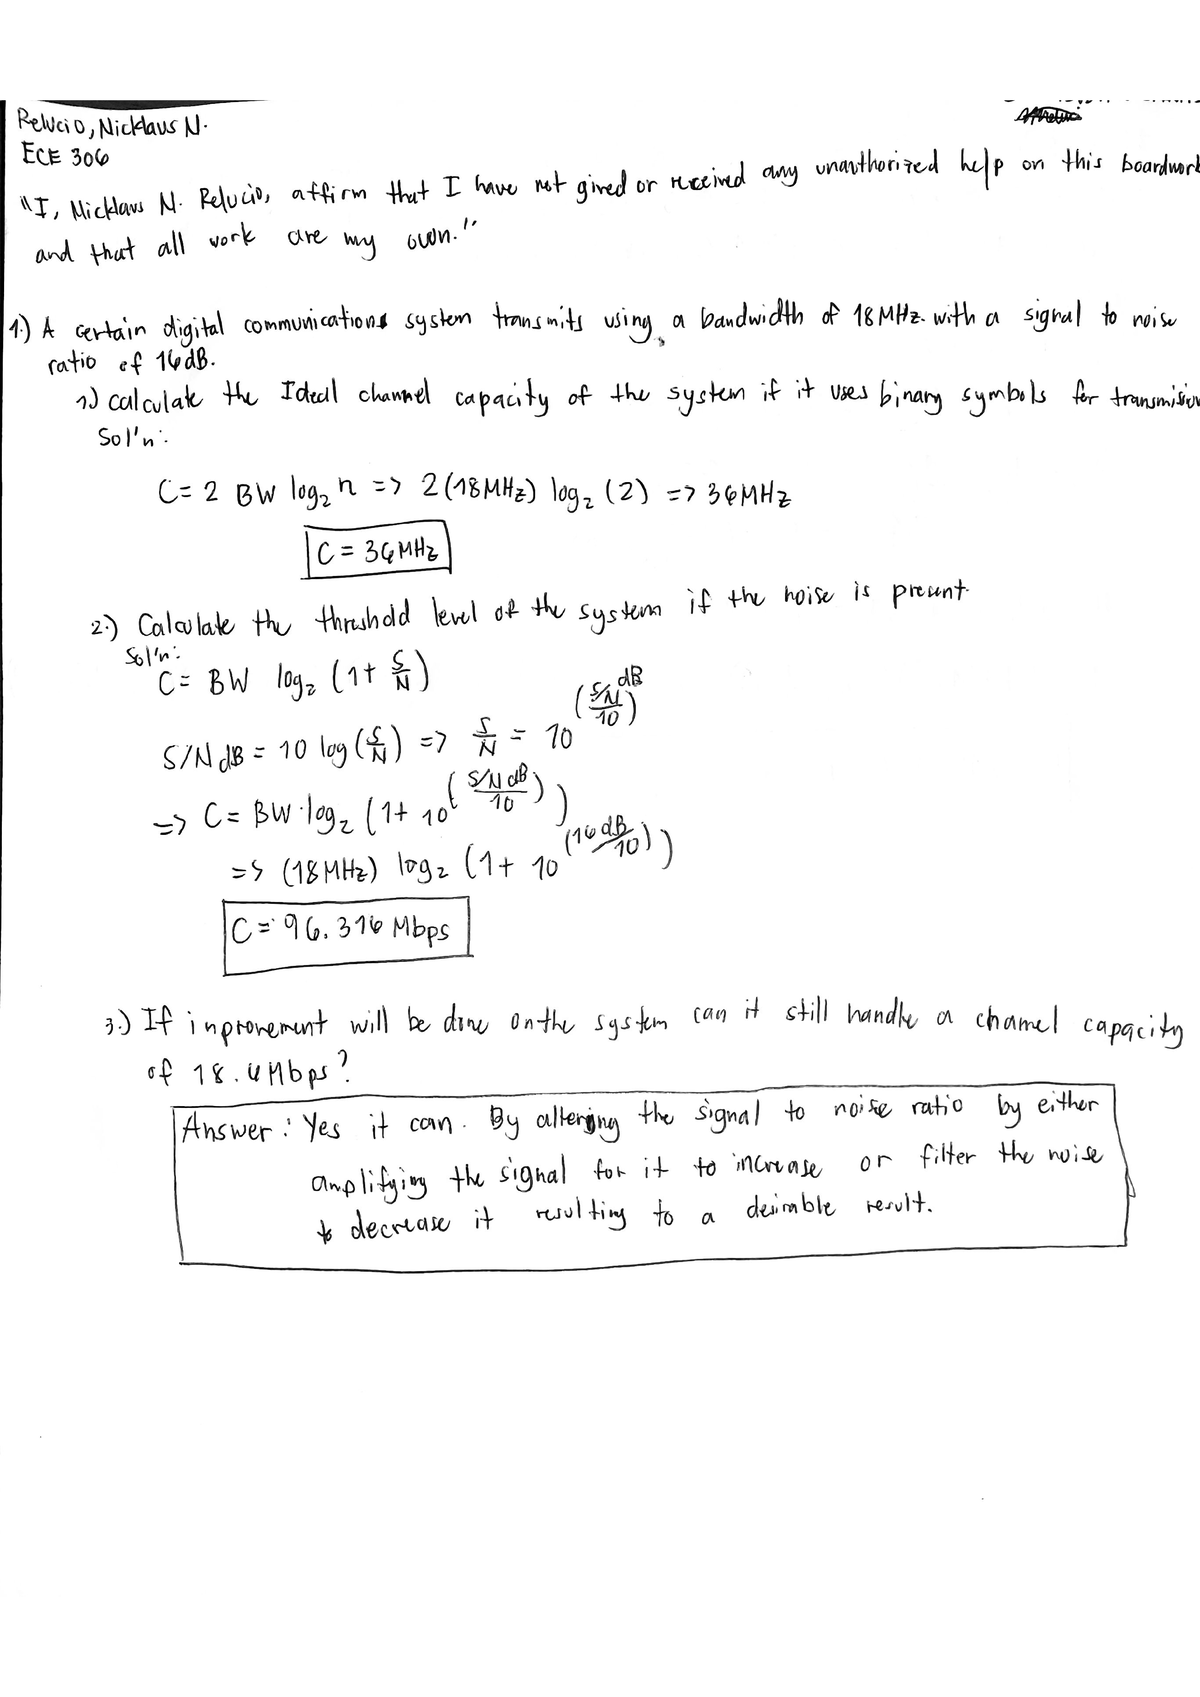 Relucio, Nicklaus N.
ECE 306
"I, Nicklaus N. Relucio, affirm that I have not gived or received any unauthorized help on this boardwork
and that all work are my own."
1.) A certain digital communications system transmits using a bandwidth of 18MHz. with a signal to noise
ratio of 16dB.
1) calculate the Ideal channel capacity of the system if it uses binary symbols for transmision
Sol'n:
C = 2 BW log₂ n => 2(18MHz) log₂ (2) => 36MHz
C = 36MHz
2.) Calculate the threshold level of the system if the noise is present.
Sol'n:
C = BW log₂ (1 + S/N)
S/N dB = 10 log (S/N) => S/N = 10^(S/N dB/10)
=> C = BW · log₂ (1 + 10^(S/N dB/10))
=> (18MHz) log₂ (1 + 10^(16dB/10))
C = 96.316 Mbps
3.) If inprovement will be done on the system can it still handle a channel capacity
of 18.6Mbps?
Answer: Yes it can. By altering the signal to noise ratio by either
amplifying the signal for it to increase or filter the noise
to decrease it resulting to a desirable result.